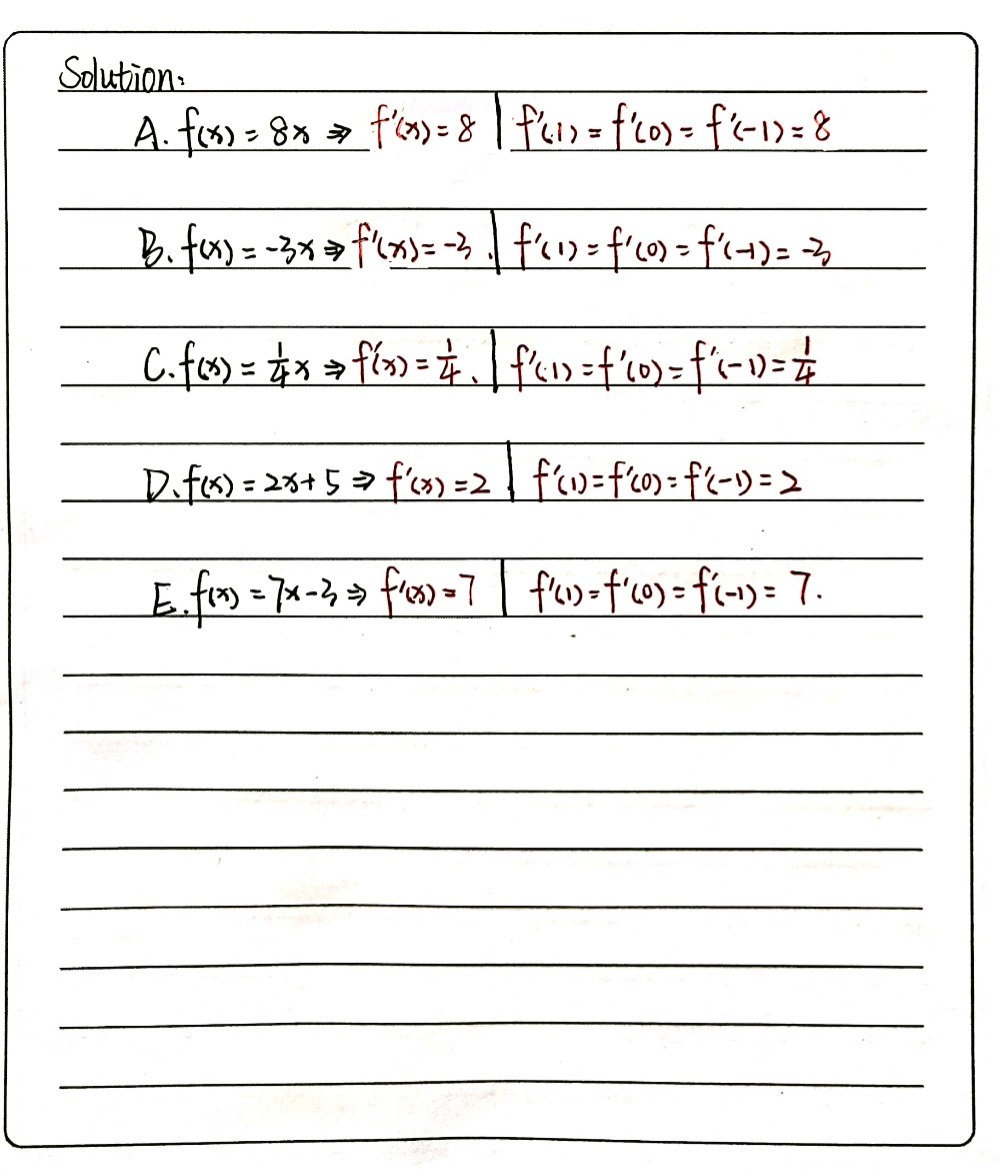 Solution:
A. f(x) = 8x ⇒ f'(x) = 8 | f'(1) = f'(0) = f'(-1) = 8
B. f(x) = -3x ⇒ f'(x) = -3. | f'(1) = f'(0) = f'(-1) = -3
C. f(x) = 1/4 x ⇒ f'(x) = 1/4. | f'(1) = f'(0) = f'(-1) = 1/4
D. f(x) = 2x + 5 ⇒ f'(x) = 2 | f'(1) = f'(0) = f'(-1) = 2
E. f(x) = 7x - 3 ⇒ f'(x) = 7 | f'(1) = f'(0) = f'(-1) = 7.